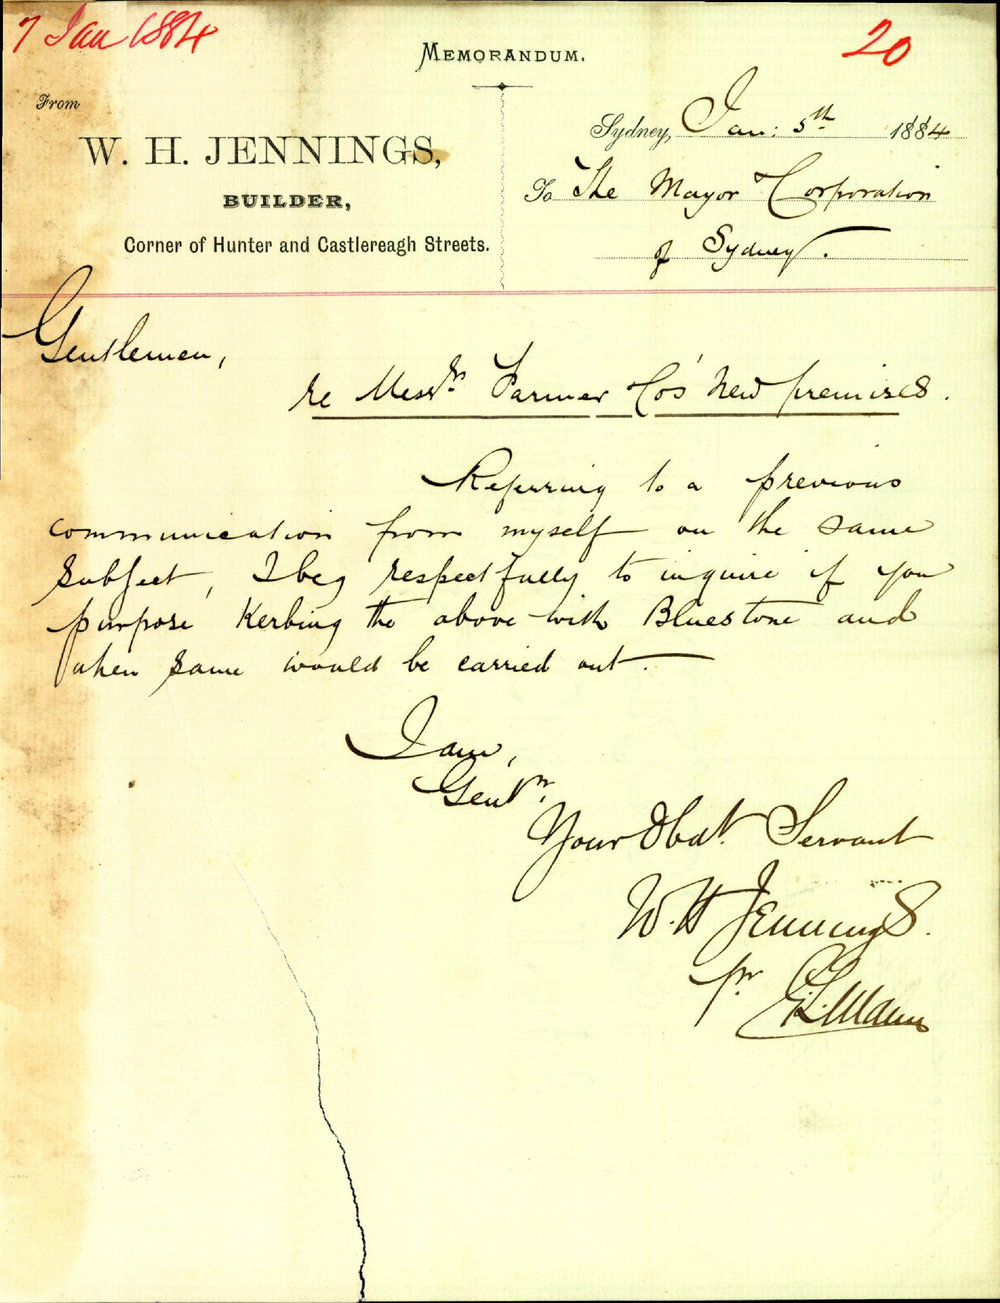 7 Jan 1884
20
MEMORANDUM.
From
W. H. JENNINGS,
BUILDER,
Corner of Hunter and Castlereagh Streets.
Sydney, Jan: 5th 1884
To The Mayor & Corporation
of Sydney.
Gentlemen,
re Messrs. Farmer Co's New premises.
Referring to a previous
communication from myself on the same
subject, I beg respectfully to inquire if you
purpose Kerbing the above with Bluestone and
when same would be carried out.
I am,
Gentn.
Your Obdt. Servant
W. H Jennings.
pr G. L. Mann